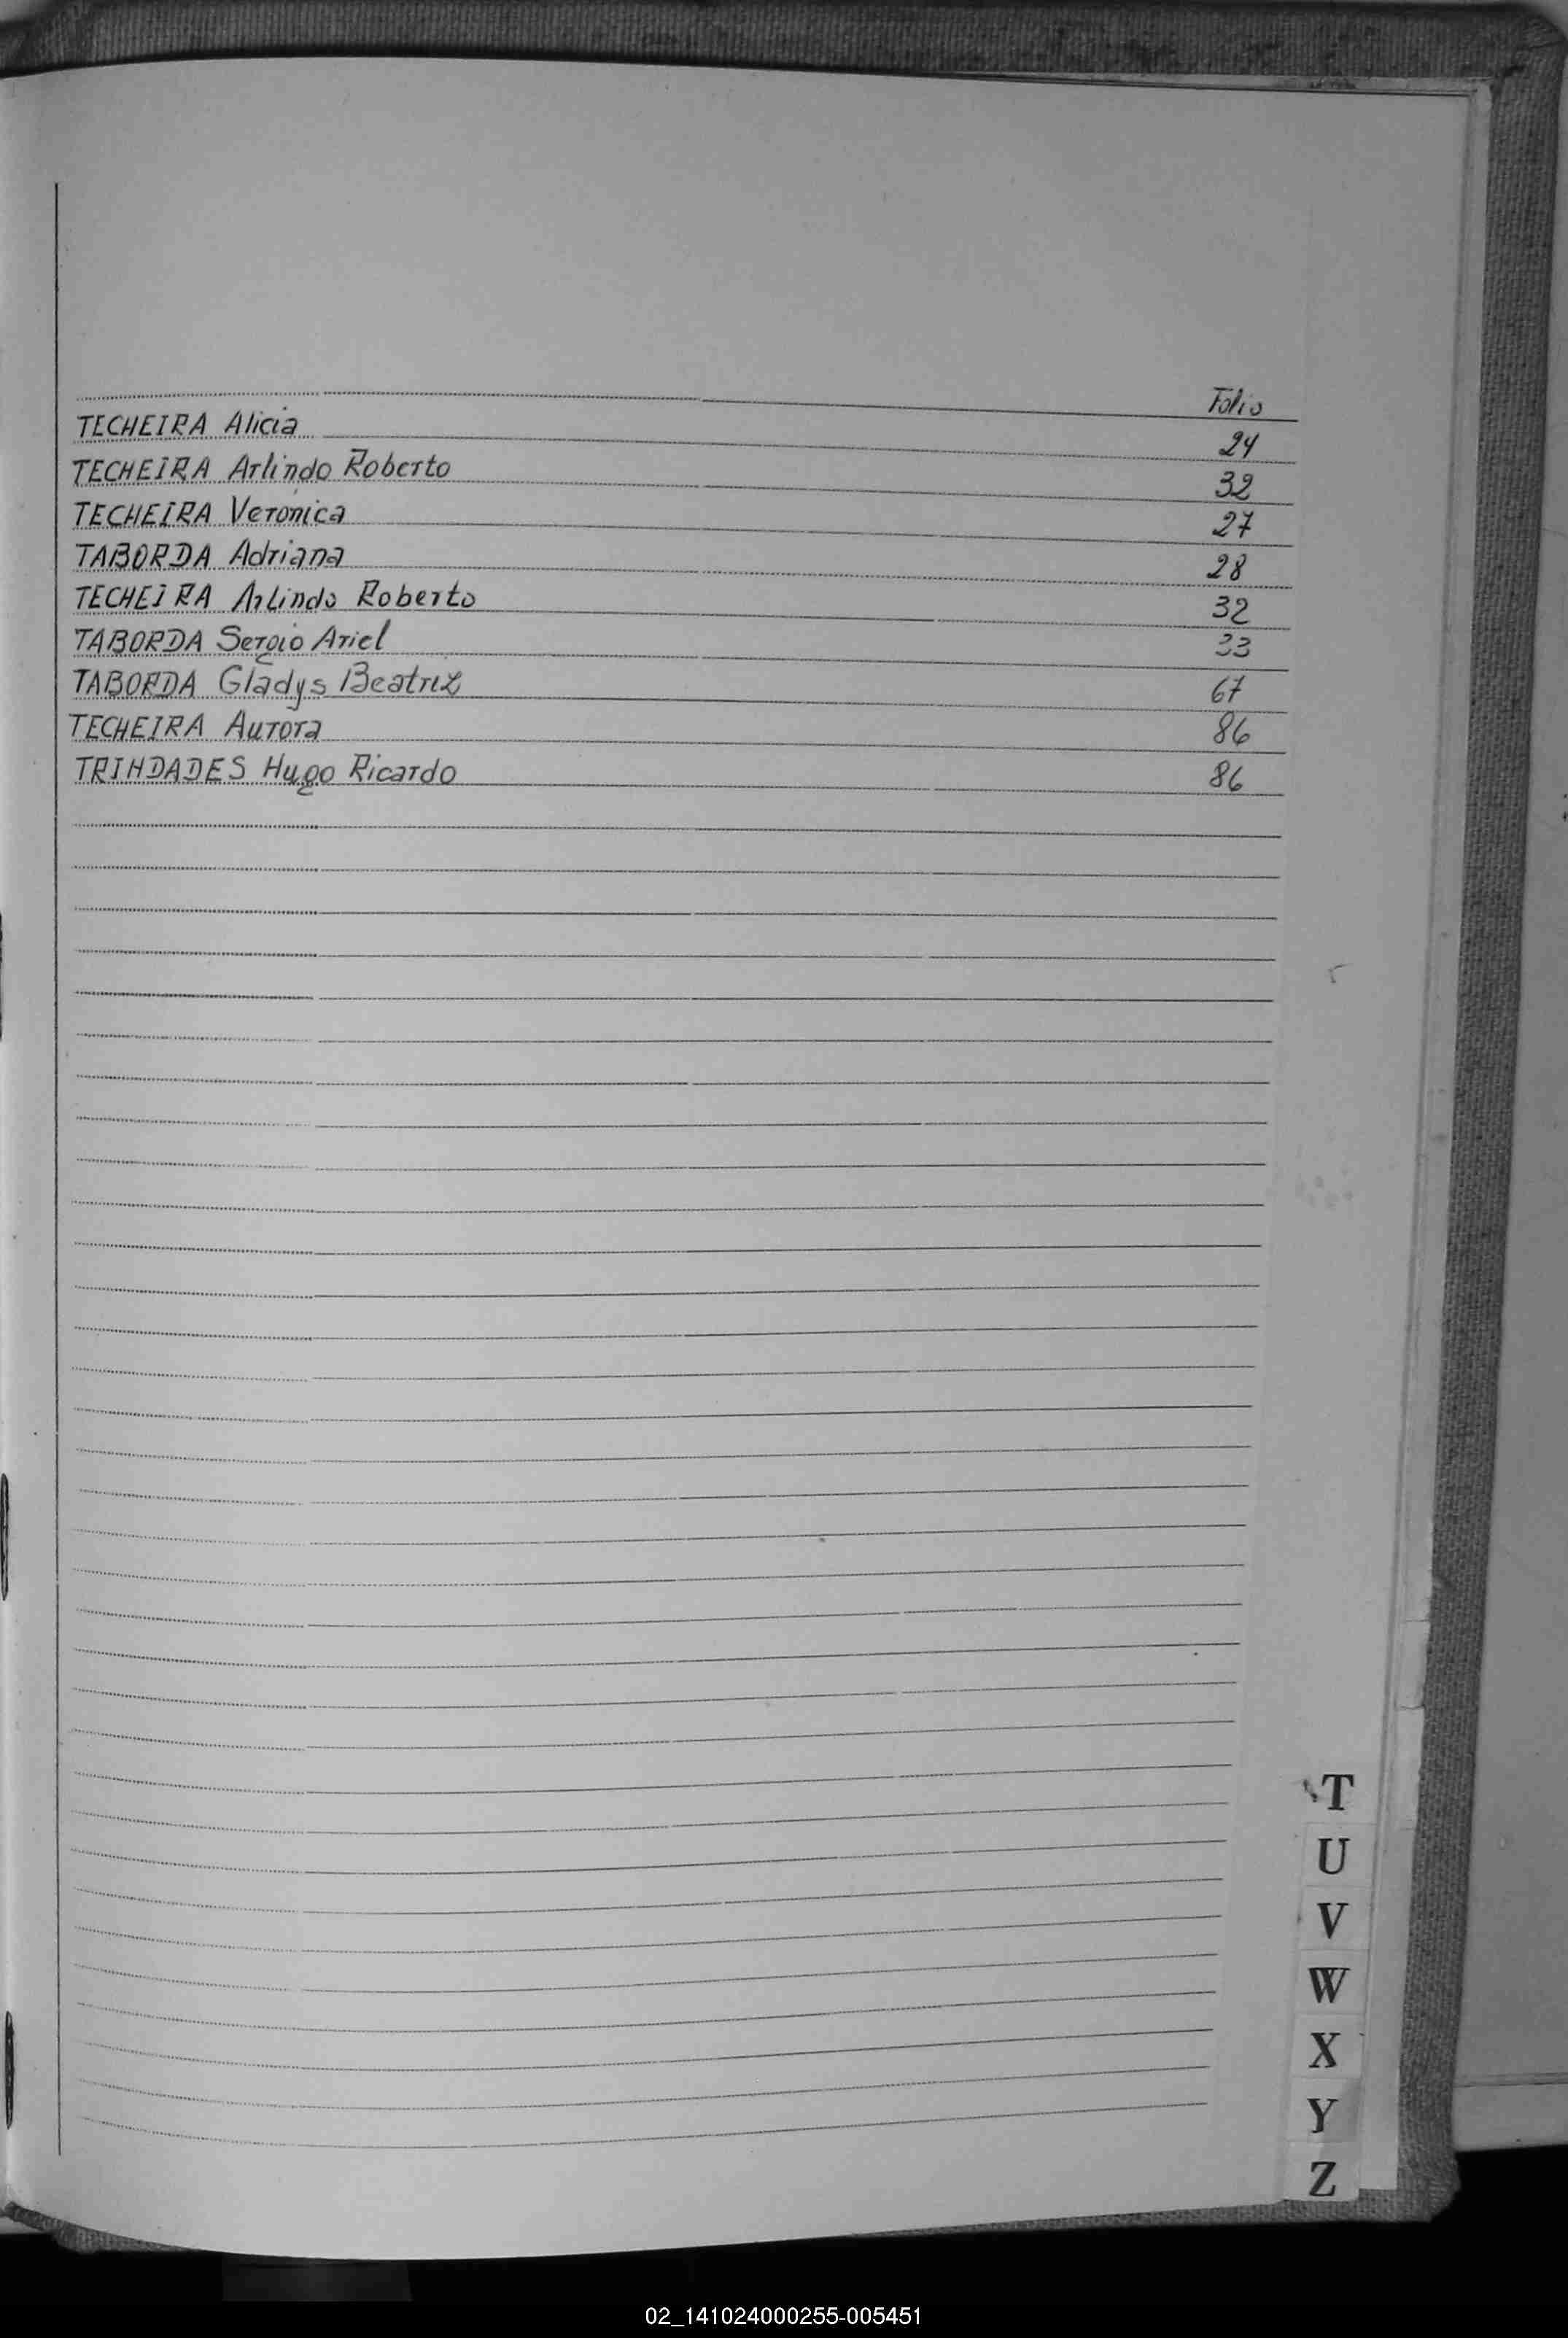 Folio
TECHEIRA Alicia 24
TECHEIRA Arlindo Roberto 32
TECHEIRA Veronica 27
TABORDA Adriana 28
TECHEIRA Arlindo Roberto 32
TABORDA Sergio Ariel 33
TABORDA Gladys Beatriz 67
TECHEIRA Aurora 86
TRINDADES Hugo Ricardo 86
T
U
V
W
X
Y
Z
02_141024000255-005451